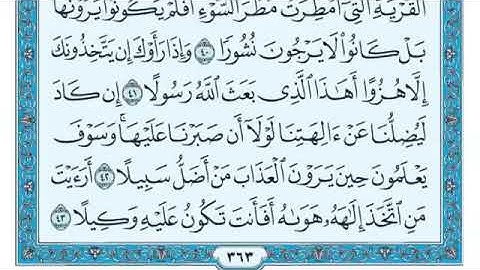 ٱلْقَرْيَةِ ٱلَّتِىٓ أُمْطِرَتْ مَطَرَ ٱلسَّوْءِ ۚ أَفَلَمْ يَكُونُوا۟ يَرَوْنَهَا ۚ
بَلْ كَانُوا۟ لَا يَرْجُونَ نُشُورًا ٤٠ وَإِذَا رَأَوْكَ إِن يَتَّخِذُونَكَ
إِلَّا هُزُوًا أَهَٰذَا ٱلَّذِى بَعَثَ ٱللَّهُ رَسُولًا ٤١ إِن كَادَ
لَيُضِلُّنَا عَنْ ءَالِهَتِنَا لَوْلَآ أَن صَبَرْنَا عَلَيْهَا ۚ وَسَوْفَ
يَعْلَمُونَ حِينَ يَرَوْنَ ٱلْعَذَابَ مَنْ أَضَلُّ سَبِيلًا ٤٢ أَرَءَيْتَ
مَنِ ٱتَّخَذَ إِلَٰهَهُۥ هَوَىٰهُ أَفَأَنتَ تَكُونُ عَلَيْهِ وَكِيلًا ٤٣
٣٦٣